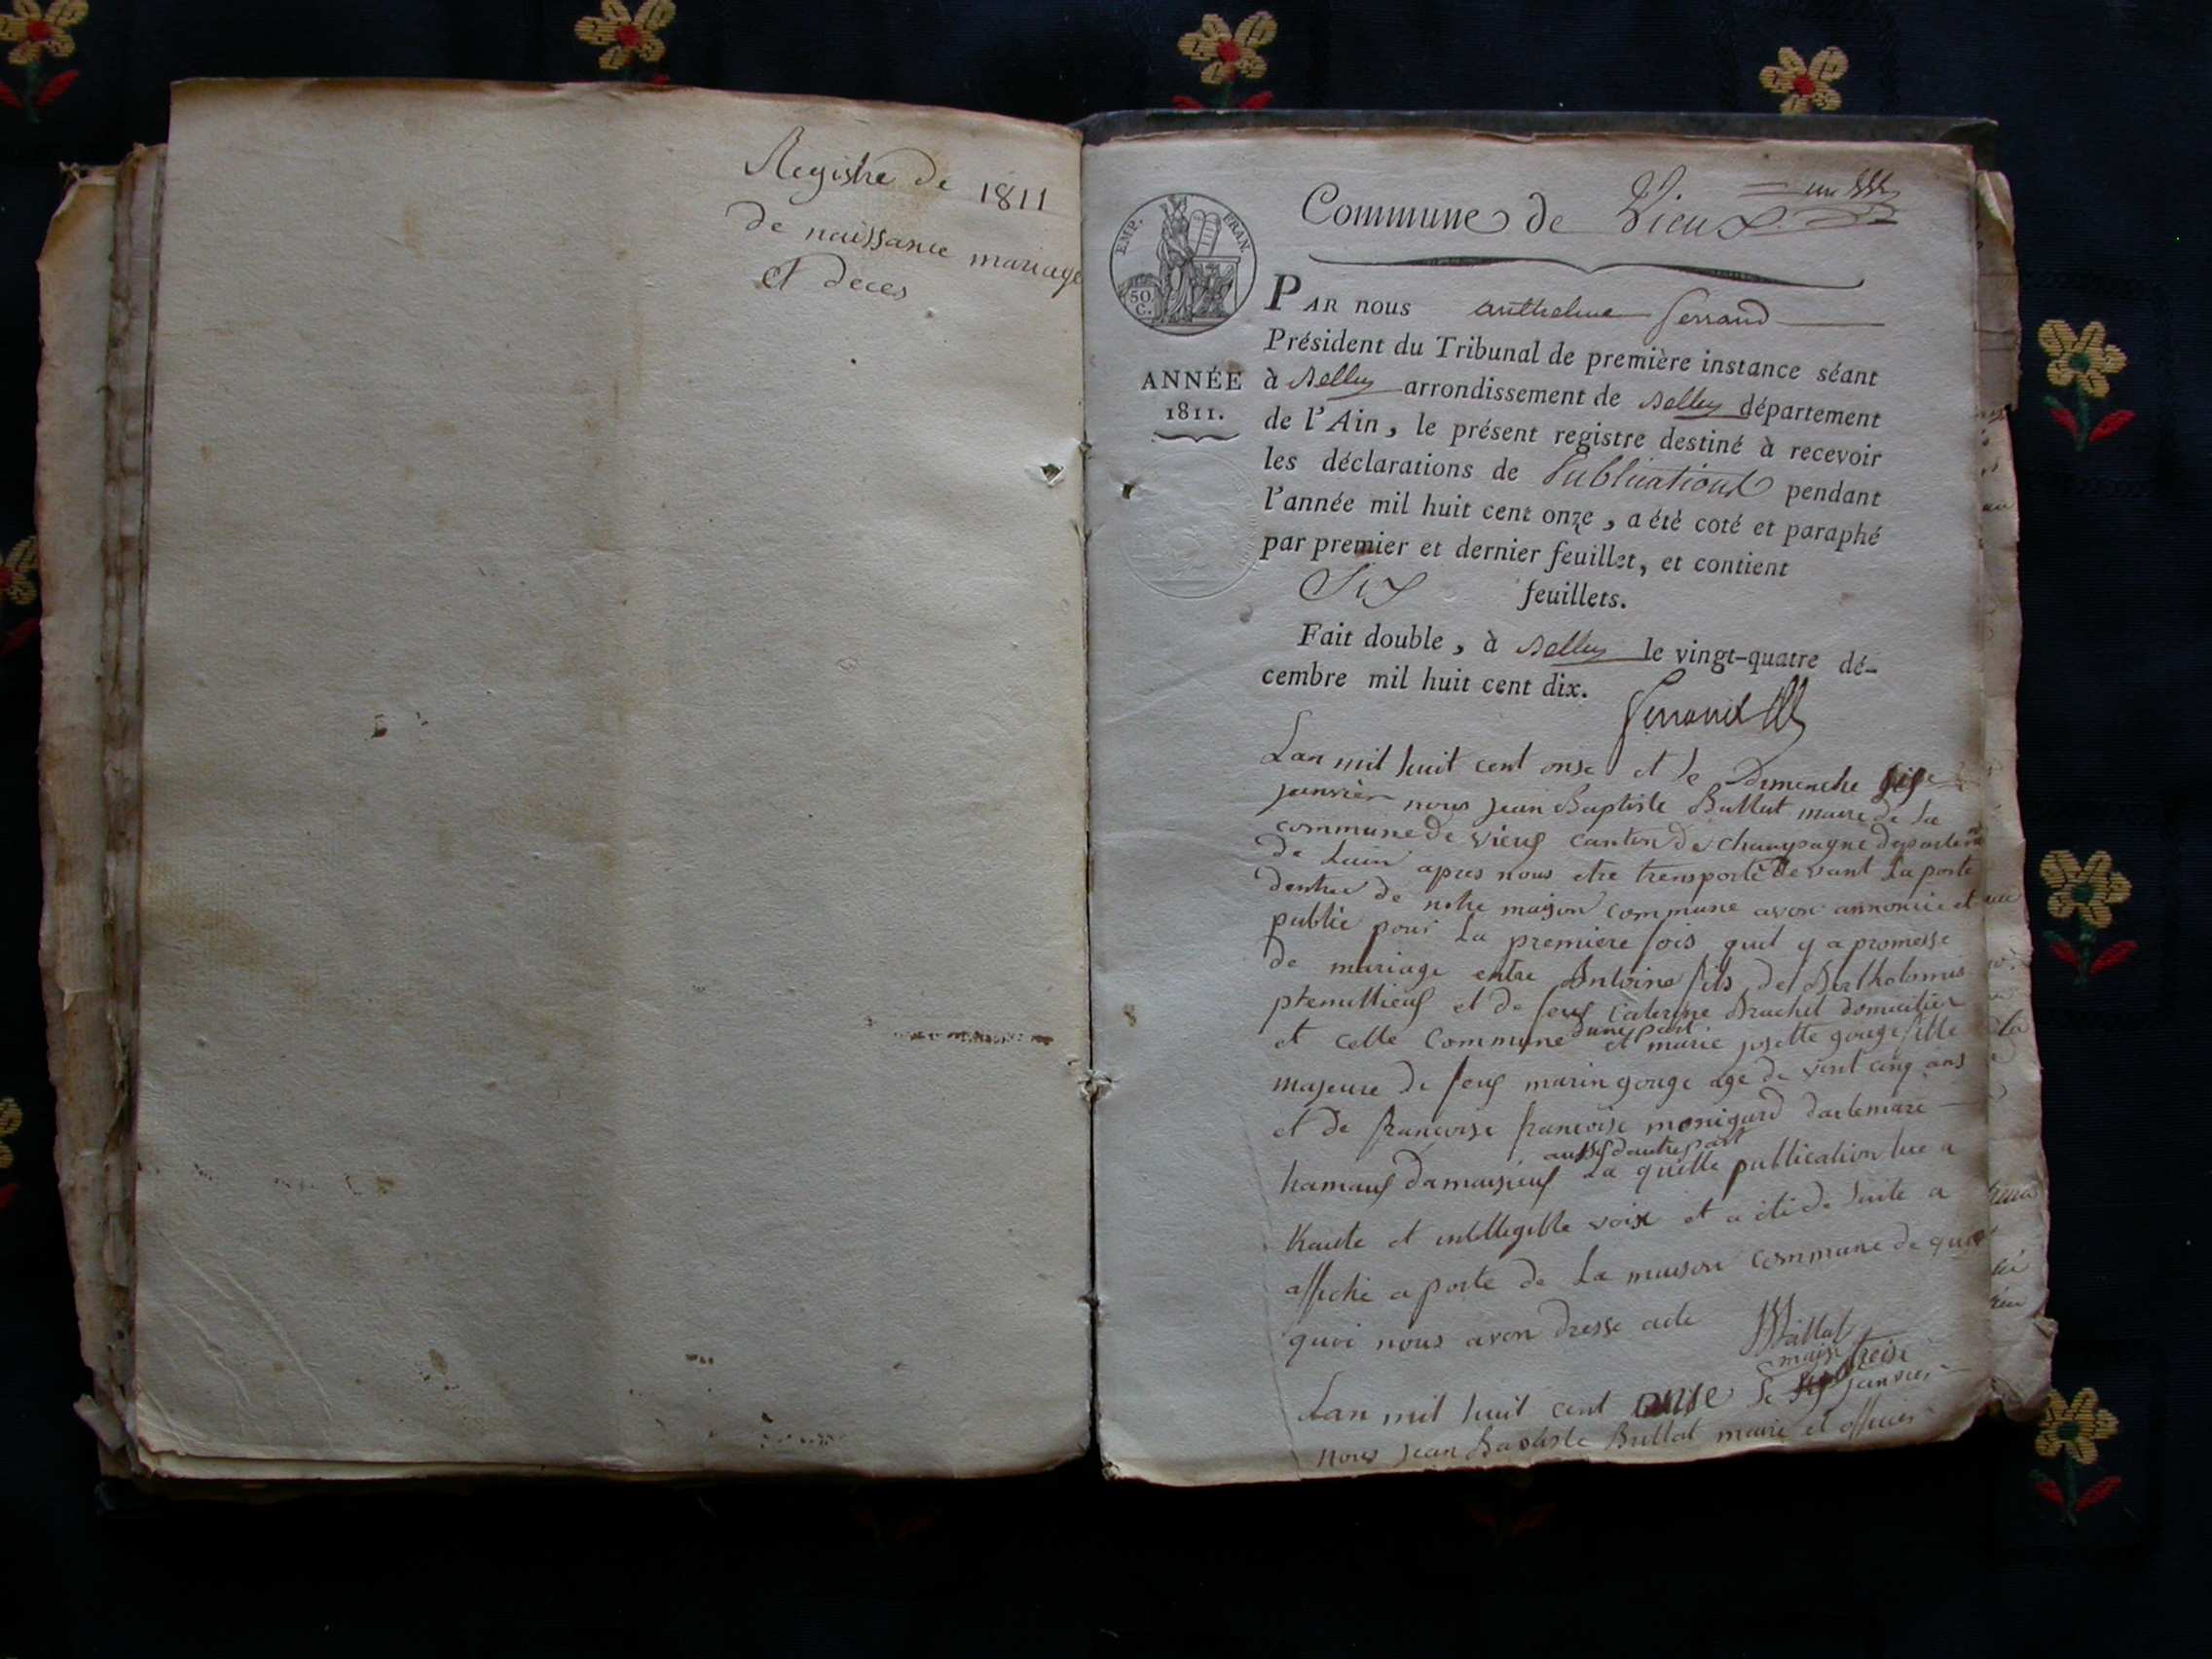 Registre de 1811
de naissance mariage
et deces
Commune de Vieux
EMP. FRAN.
50 C.
PAR nous anthelme ferrand
Président du Tribunal de première instance séant
ANNÉE
1811.
à Belley arrondissement de Belley département
de l'Ain, le présent registre destiné à recevoir
les déclarations de Publications pendant
l'année mil huit cent onze, a été coté et paraphé
par premier et dernier feuillet, et contient
Six feuillets.
Fait double, à Belley le vingt-quatre dé-
cembre mil huit cent dix.
Lan mil huit cent onse et le Dimenche
janvier nous jean Baptiste Ballat maire de la
commune de vieux canton de champagne departem
de Lain apres nous etre transporté devant La porte
dentree de notre maison commune avon annoncé et
publié pour La premiere fois quil y a promesse
de mariage entre Antoine fils de Bartholomie
et de feux Caterine Brachet domicilier
et cette Commune dune part et marie josette gouge fille
majeure de feux marin gouge age de vint cinq ans
et de francoise francoise monigard dartemare
hamaux damaisieux aussi dautre part La quelle publication lue a
haute et intelligible voix et a été de suite a
affiché a porte de La maison commune de quoi
quoi nous avon dresse acte Ballat
maire
Lan mil huit cent onse Le treise janvier
nous jean Baptiste Ballat maire et officier